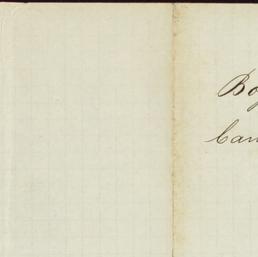 Bo
Can